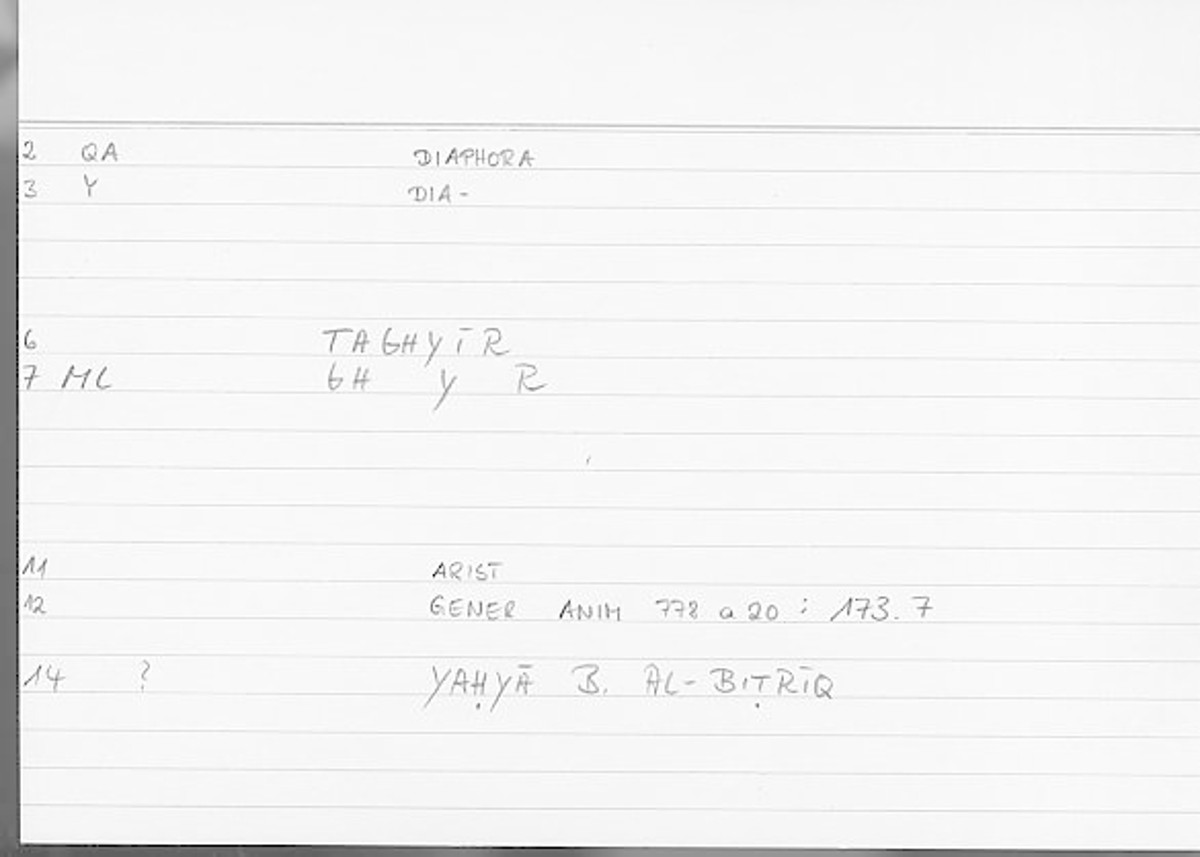 2 QA DIAPHORA
3 Y DIA-
6 TAGHYĪR
7 ML GH Y R
11 ARIST
12 GENER ANIM 778 a 20 : 173.7
14 ? YAḤYĀ B. AL-BIṬRĪQ